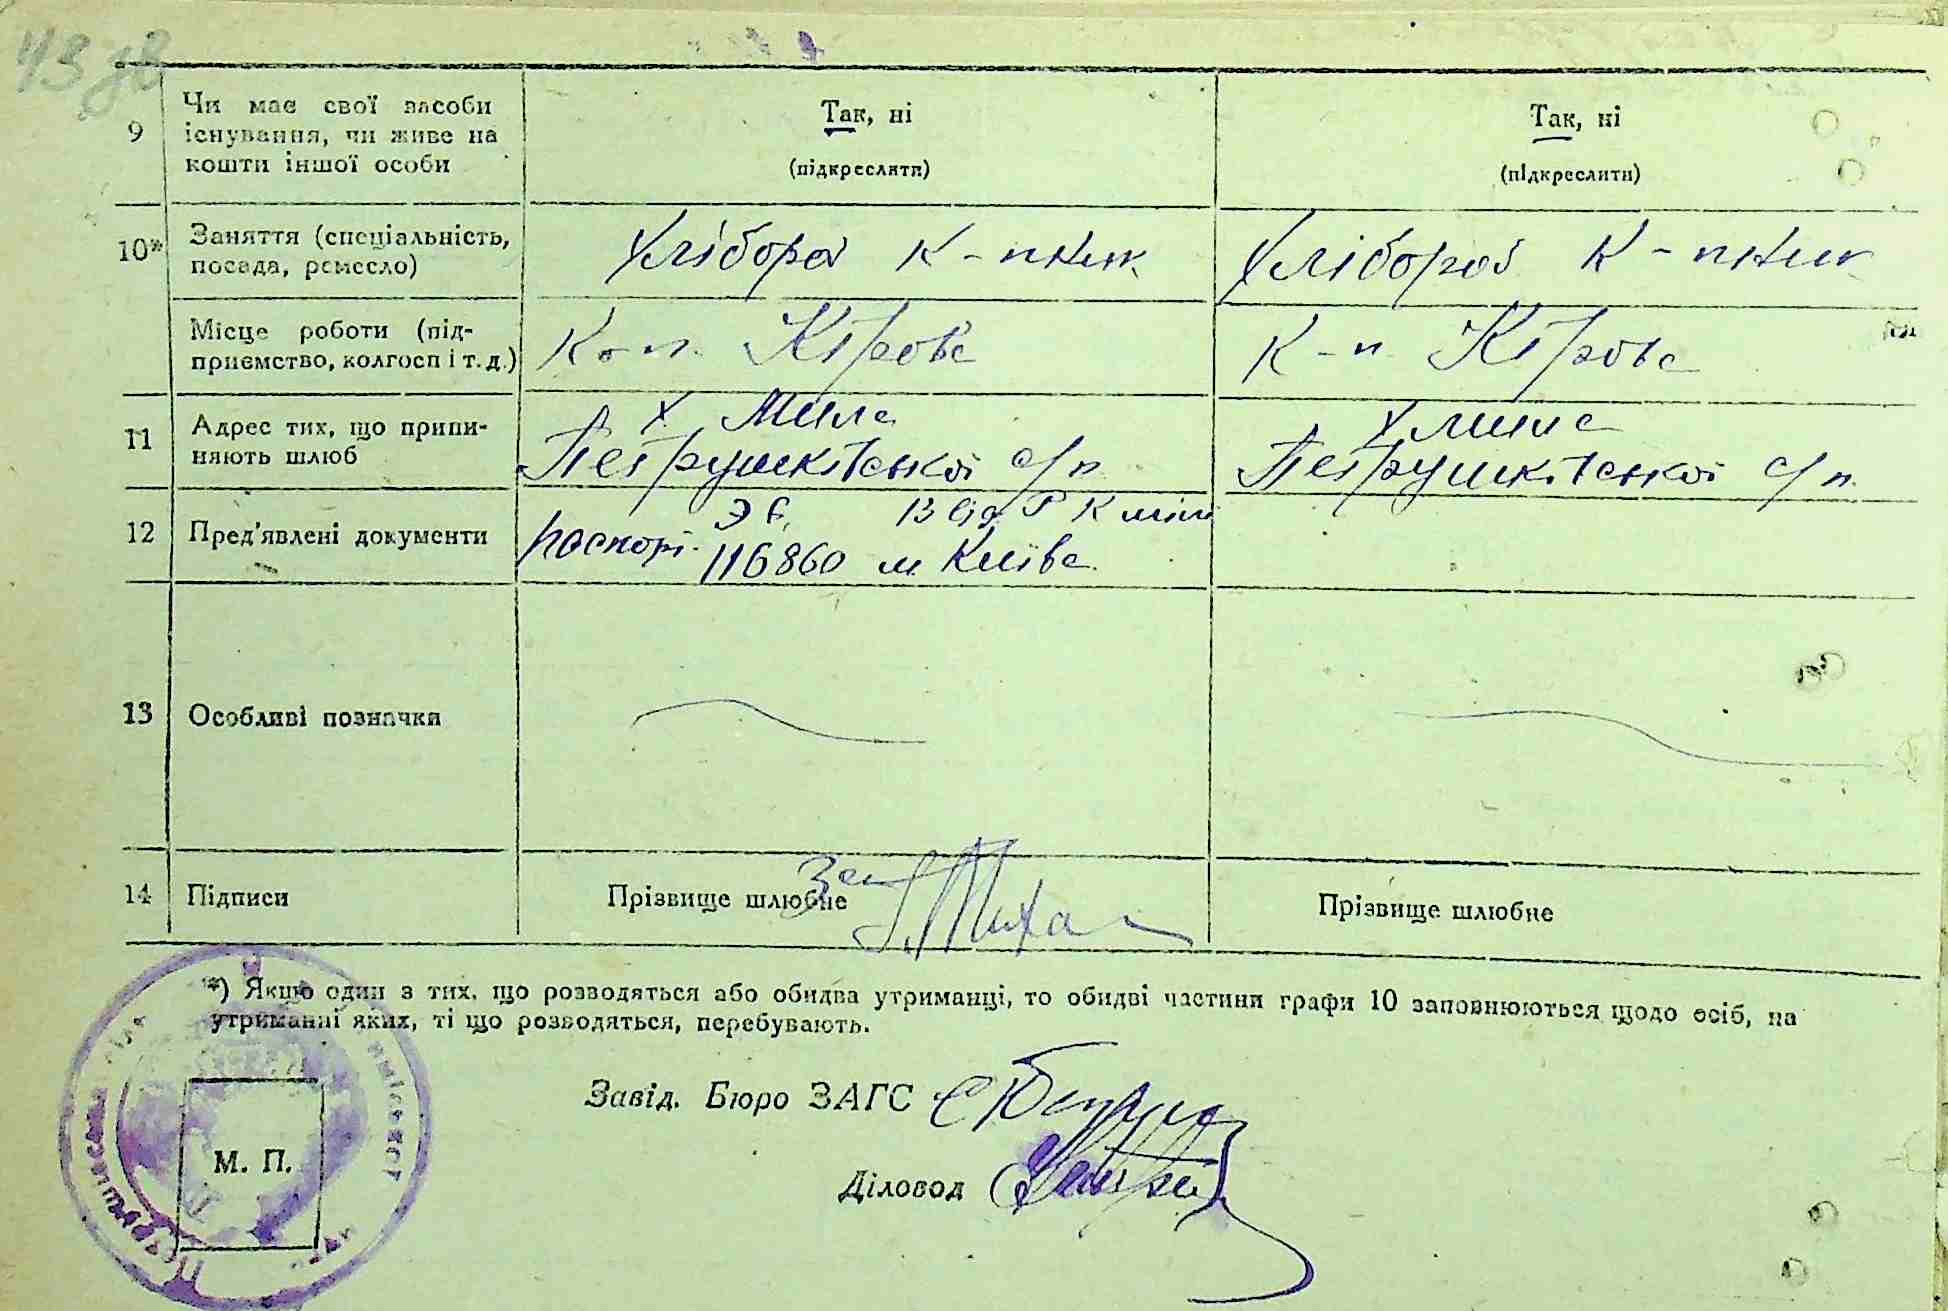 43 зв
9
Чи має свої засоби
існування, чи живе на
кошти іншої особи
Так, ні
(підкреслити)
Так, ні
(підкреслити)
10*
Заняття (спеціальність,
посада, ремесло)
Хлібороб к-пник
Хлібороб к-пник
Місце роботи (під-
приємство, колгосп і т. д.)
К-п. Кірова
К-п Кірова
11
Адрес тих, що припи-
няють шлюб
х Мила
Петрушківської с/р
х мила
Петрушківської с/р
12
Пред'явлені документи
паспорт
116860 м Києва
13
Особливі позначки
14
Підписи
Прізвище шлюбне
Прізвище шлюбне
*) Якщо один з тих, що розводяться або обидва утриманці, то обидві частини графи 10 заповнюються щодо осіб, на
утриманні яких, ті що розводяться, перебувають.
Завід. Бюро ЗАГС
Діловод
М. П.